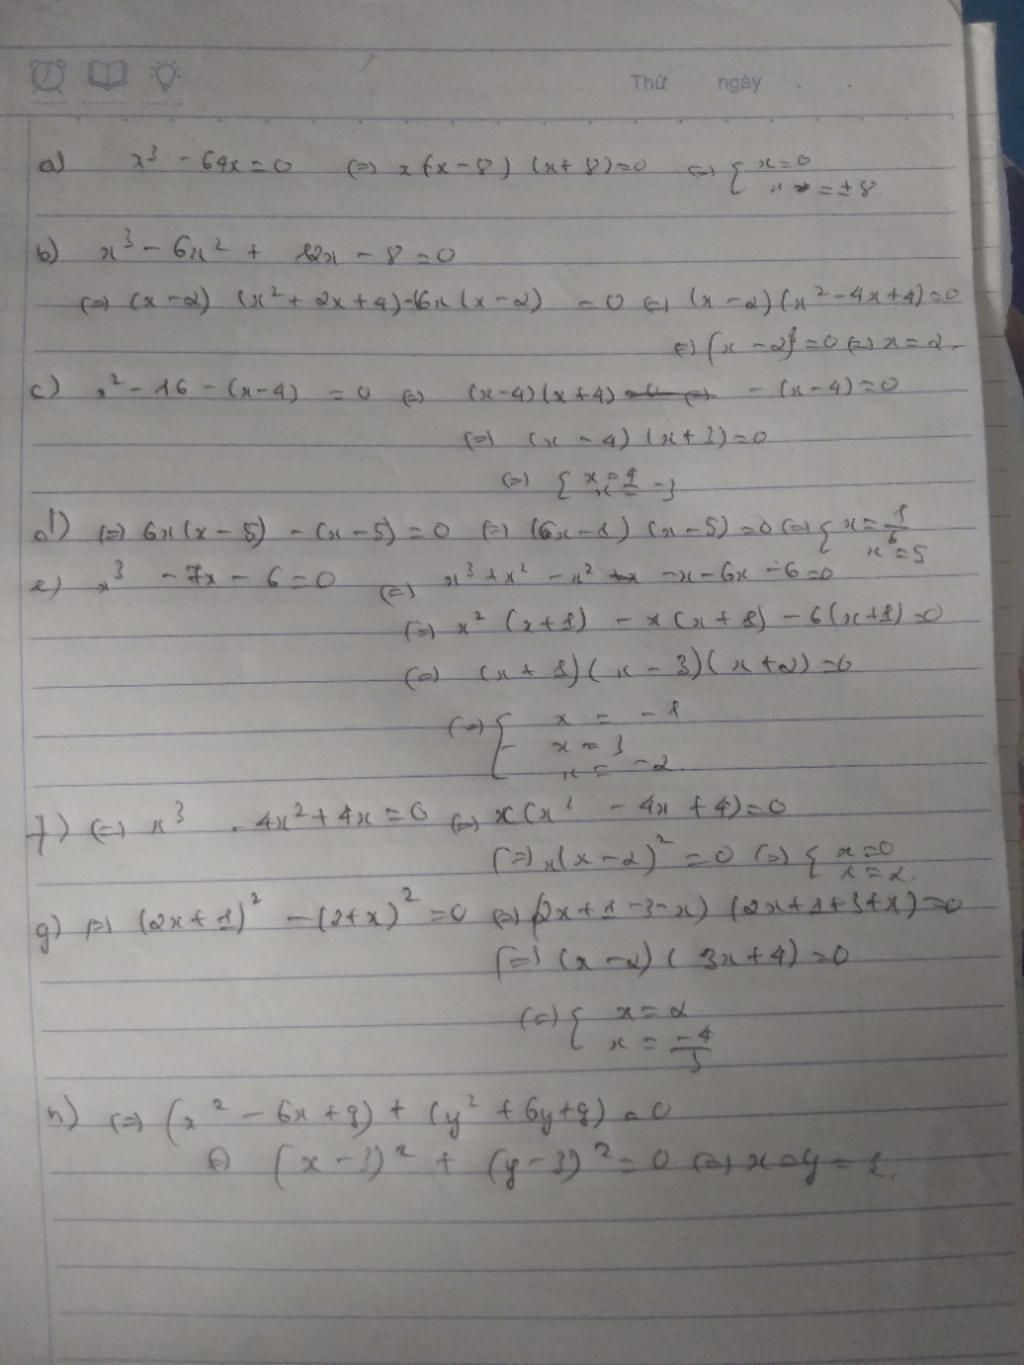 Thứ ngày
a) x³ - 64x = 0 (=) x(x - 8) (x + 8) = 0 (=) { x = 0
x = ± 8.
b) x³ - 6x² + 12x - 8 = 0
(=) (x - 2) (x² + 2x + 4) - 6x (x - 2) = 0 (=) (x - 2) (x² - 4x + 4) = 0
(=) (x - 2)³ = 0 (=) x = 2.
c) x² - 16 - (x - 4) = 0 (=) (x - 4) (x + 4) - (x - 4) = 0
(=) (x - 4) (x + 3) = 0
(=) { x = 4
x = - 3
d) (=) 6x (x - 5) - (x - 5) = 0 (=) (6x - 1) (x - 5) = 0 (=) { x = 1/6
x = 5
e) x³ - 7x - 6 = 0 (=) x³ + x² - x² - x - 6x - 6 = 0
(=) x² (x + 1) - x (x + 1) - 6 (x + 1) = 0
(=) (x + 1) (x - 3) (x + 2) = 0
(=) { x = - 1
x = 3
x = - 2
f) (=) x³ - 4x² + 4x = 0 (=) x (x² - 4x + 4) = 0
(=) x (x - 2)² = 0 (=) { x = 0
x = 2.
g) (=) (2x + 1)² - (2 + x)² = 0 (=) (2x + 1 - 3 - x) (2x + 1 + 3 + x) = 0
(=) (x - 2) (3x + 4) = 0
(=) { x = 2
x = -4/3
h) (=) (x² - 6x + 9) + (y² + 6y + 9) = 0
(=) (x - 3)² + (y - 3)² = 0 (=) x = y = 3.